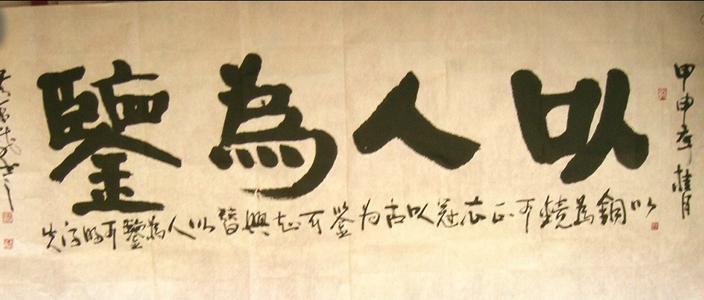 甲申年桂月
以人為鑒
以銅為鏡可正衣冠以古为鉴可知興替以人為鑒可明得失